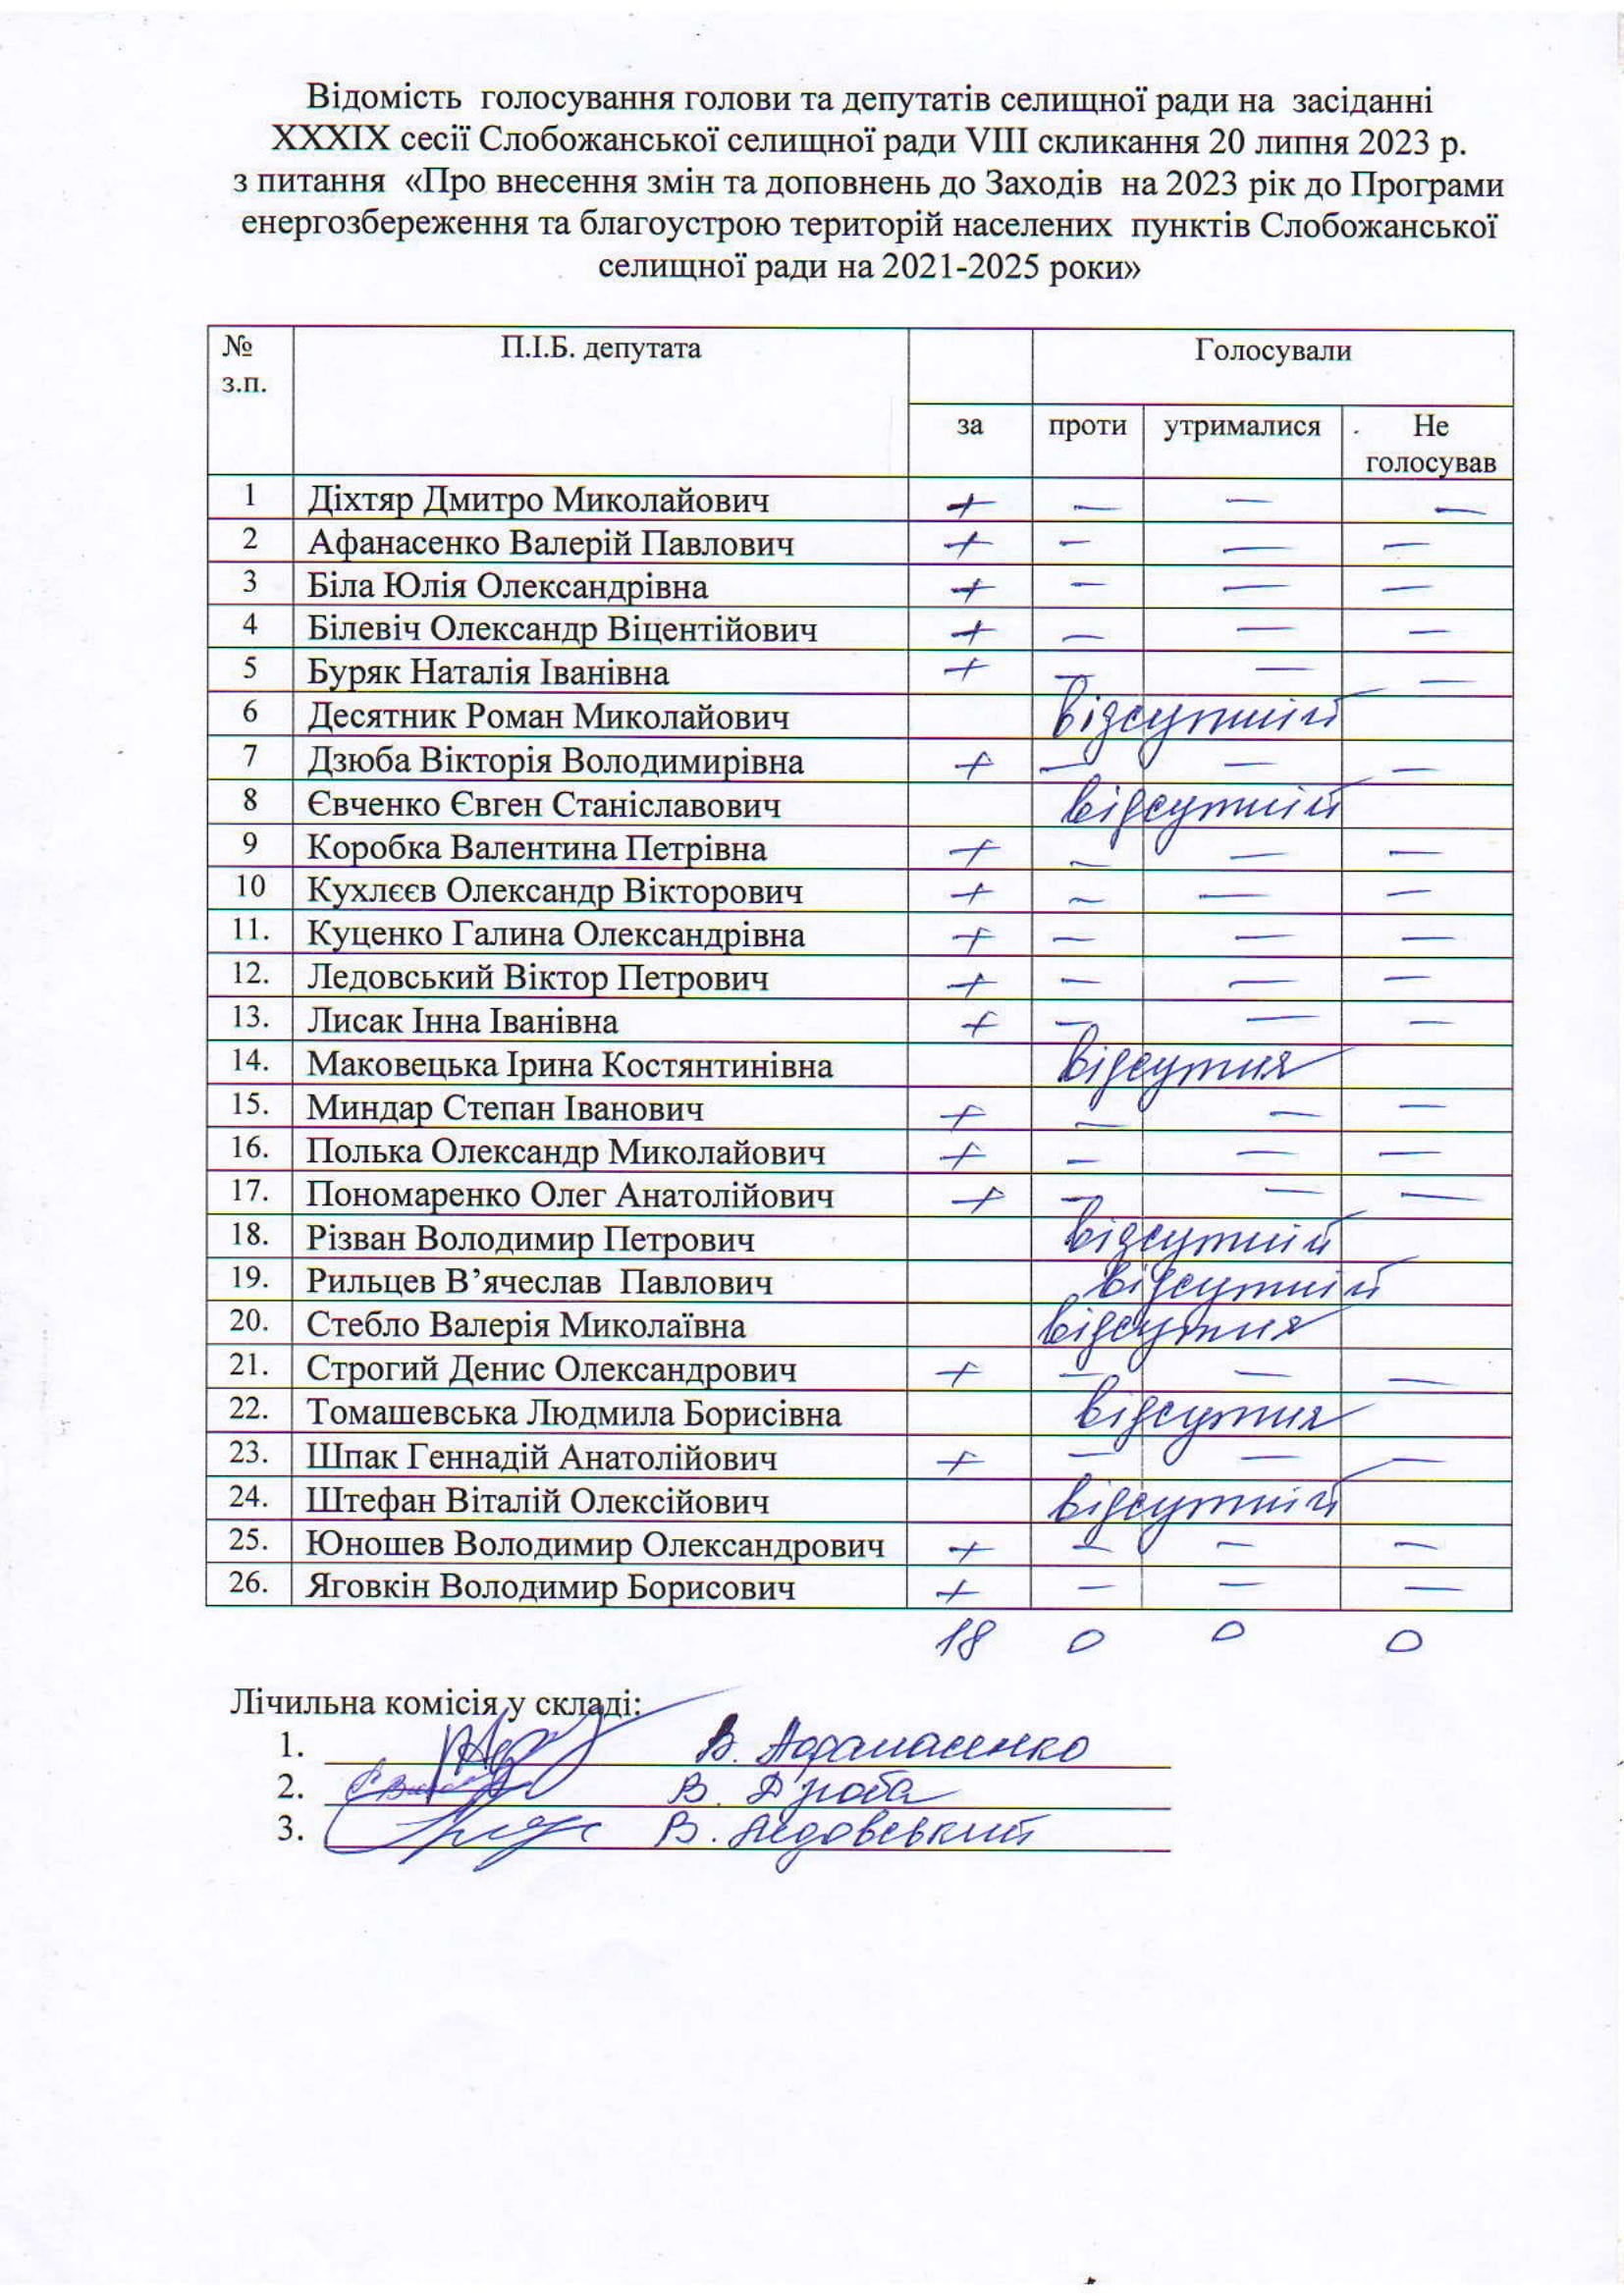 Відомість голосування голови та депутатів селищної ради на засіданні
XXXIX сесії Слобожанської селищної ради VIII скликання 20 липня 2023 р.
з питання «Про внесення змін та доповнень до Заходів на 2023 рік до Програми
енергозбереження та благоустрою територій населених пунктів Слобожанської
селищної ради на 2021-2025 роки»
№ з.п. П.І.Б. депутата Голосували
за проти утрималися Не голосував
1 Діхтяр Дмитро Миколайович + – – –
2 Афанасенко Валерій Павлович + – – –
3 Біла Юлія Олександрівна + – – –
4 Білевіч Олександр Віцентійович + – – –
5 Буряк Наталія Іванівна + – – –
6 Десятник Роман Миколайович відсутній
7 Дзюба Вікторія Володимирівна + – – –
8 Євченко Євген Станіславович відсутній
9 Коробка Валентина Петрівна + – – –
10 Кухлєєв Олександр Вікторович + – – –
11. Куценко Галина Олександрівна + – – –
12. Ледовський Віктор Петрович + – – –
13. Лисак Інна Іванівна + – – –
14. Маковецька Ірина Костянтинівна відсутня
15. Миндар Степан Іванович + – – –
16. Полька Олександр Миколайович + – – –
17. Пономаренко Олег Анатолійович + – – –
18. Різван Володимир Петрович відсутній
19. Рильцев В’ячеслав Павлович відсутній
20. Стебло Валерія Миколаївна відсутня
21. Строгий Денис Олександрович + – – –
22. Томашевська Людмила Борисівна відсутня
23. Шпак Геннадій Анатолійович + – – –
24. Штефан Віталій Олексійович відсутній
25. Юношев Володимир Олександрович + – – –
26. Яговкін Володимир Борисович + – – –
18 0 0 0
Лічильна комісія у складі:
1. В. Афанасенко
2. В. Дзюба
3. В. Ледовський